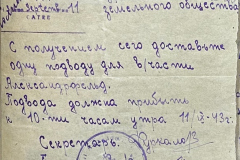 земельного общества
11
С получением сего доставьте
одну подводу для в/части
Александрфельд.
Подвода должна прибыть
к 10-ти часам утра 11/IX-43г.
Секретарь